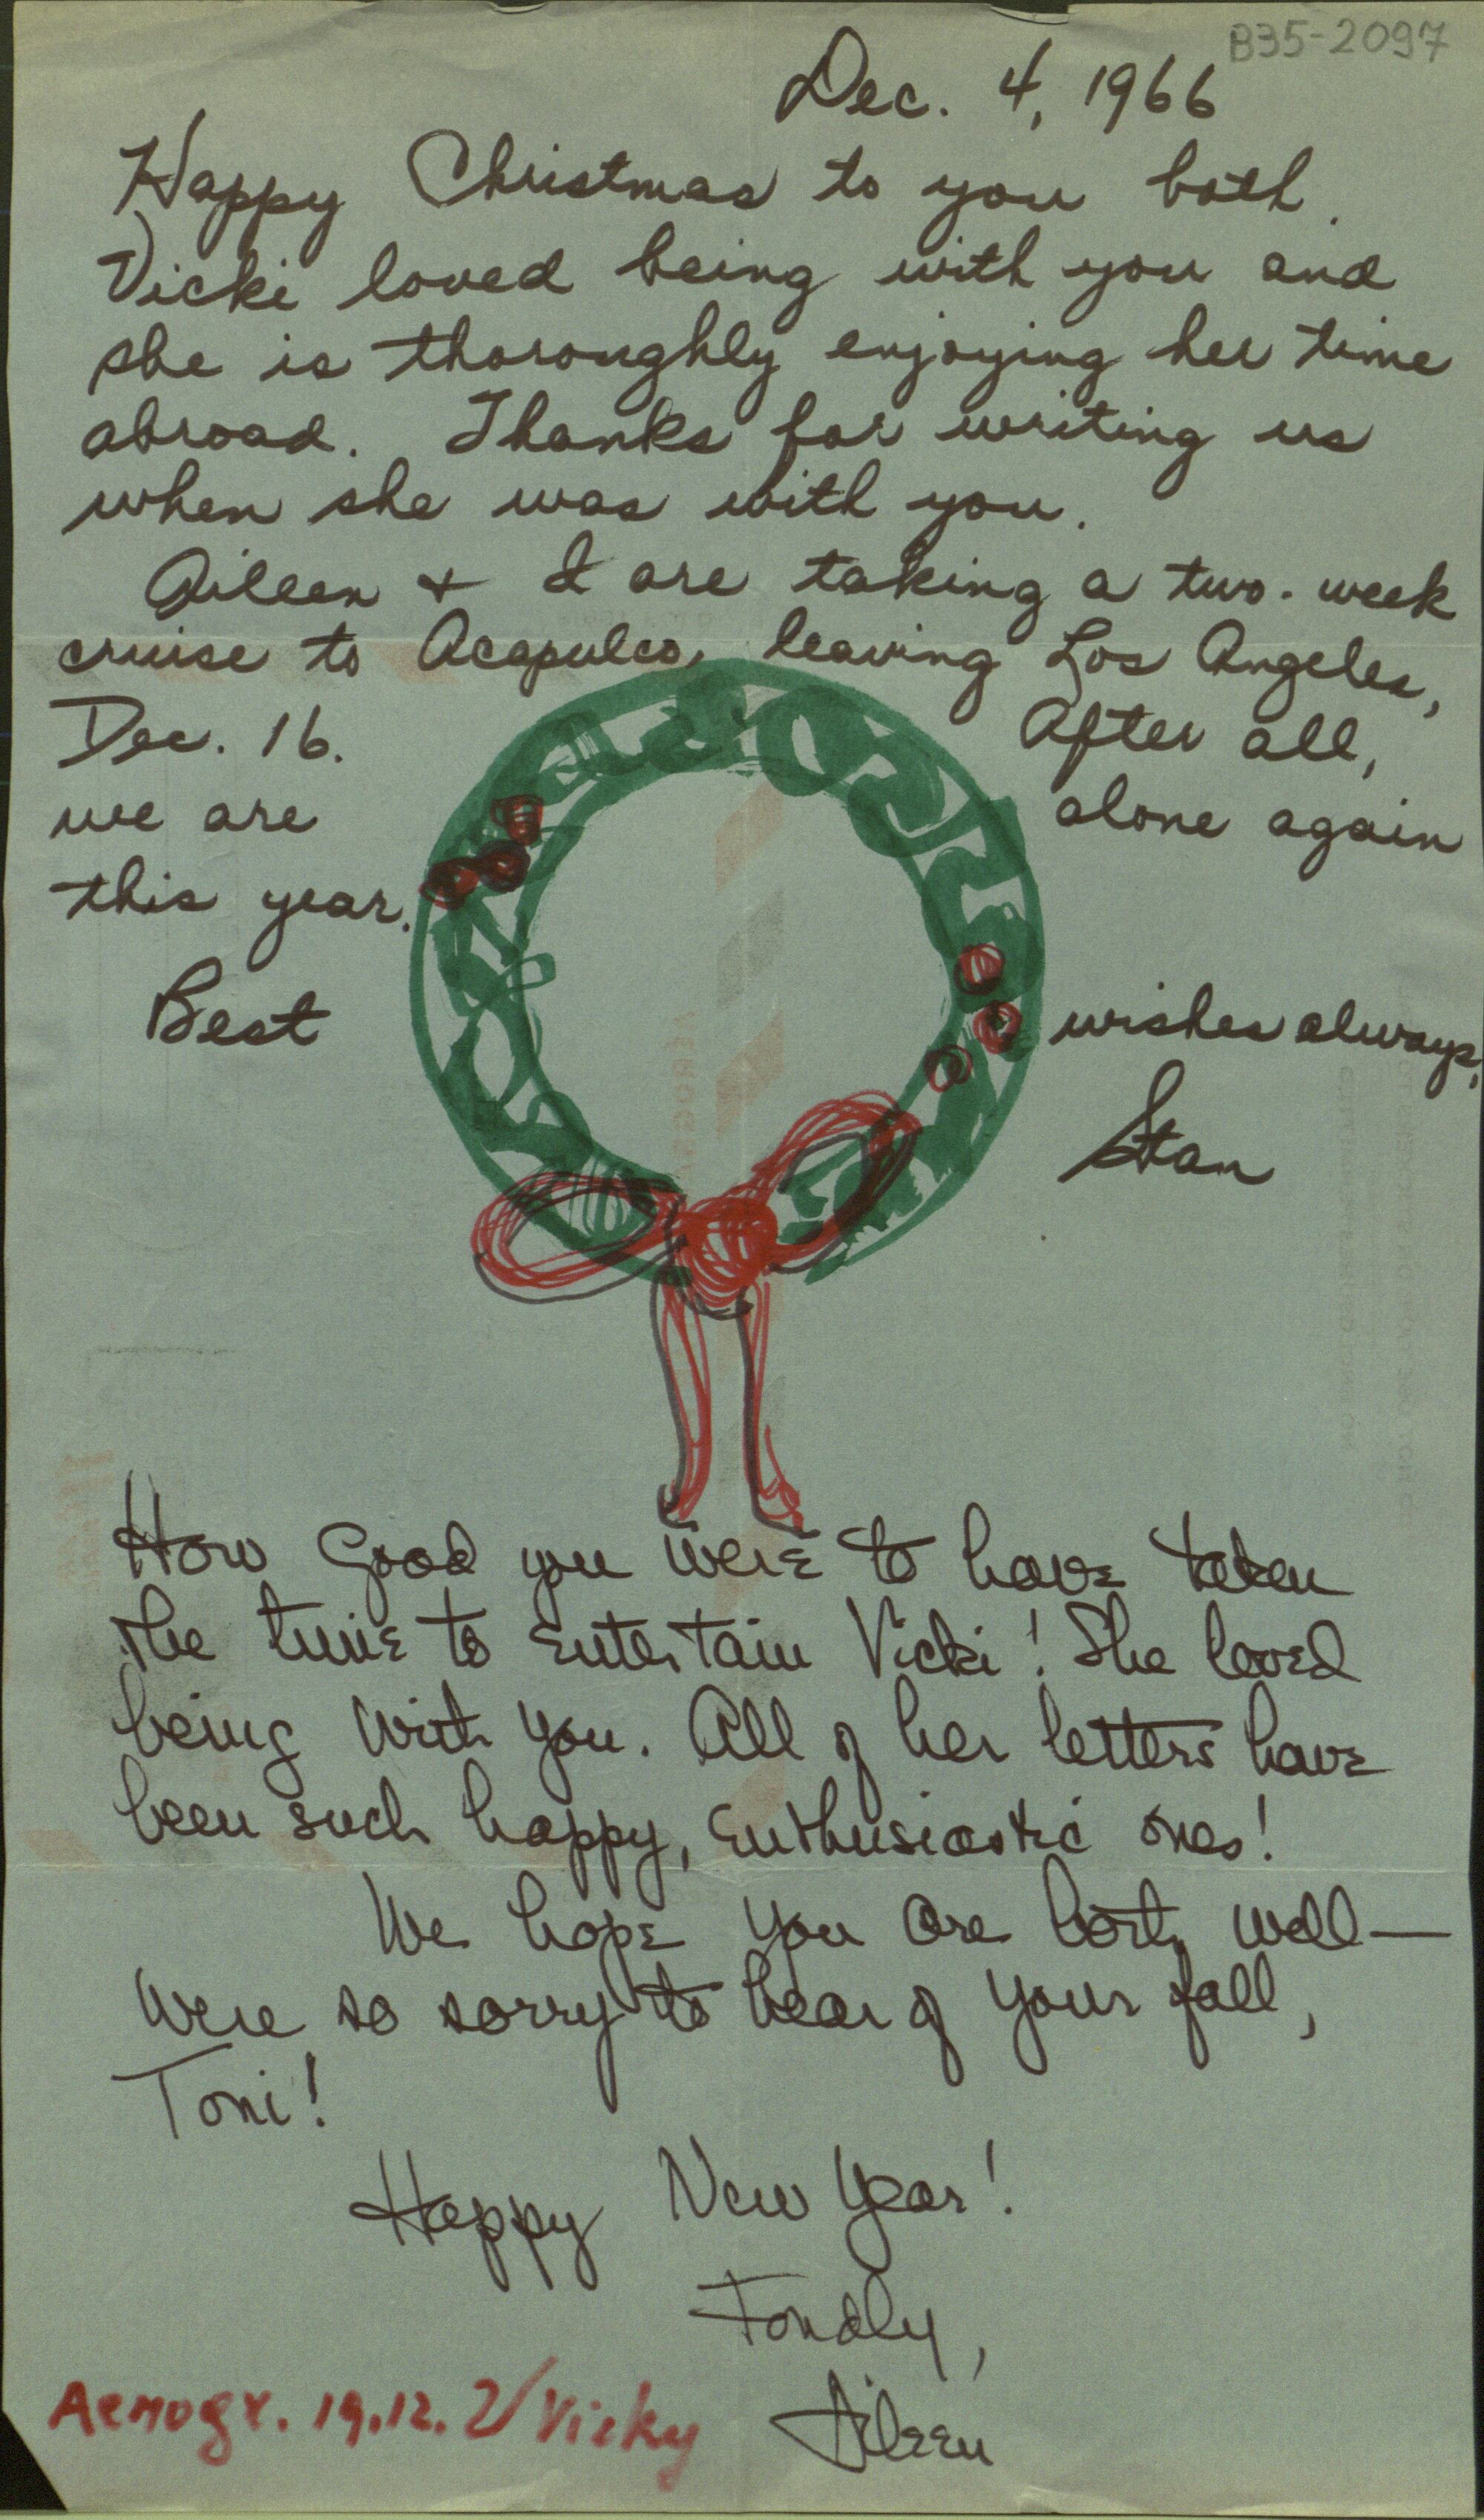 B35-2097
Dec. 4, 1966
Happy Christmas to you both.
Vicki loved being with you and
she is thoroughly enjoying her time
abroad. Thanks for writing us
when she was with you.
Aileen + I are taking a two-week
cruise to Acapulco, leaving Los Angeles,
Dec. 16. After all,
we are alone again
this year.
Best wishes always,
Stan
How good you were to have taken
the time to entertain Vicki! She loved
being with you. All of her letters have
been such happy, enthusiastic ones!
We hope you are both well—
Were so sorry to hear of your fall,
Toni!
Happy New Year!
Fondly,
Aileen
Aerogr. 19.12. 2/Vicky